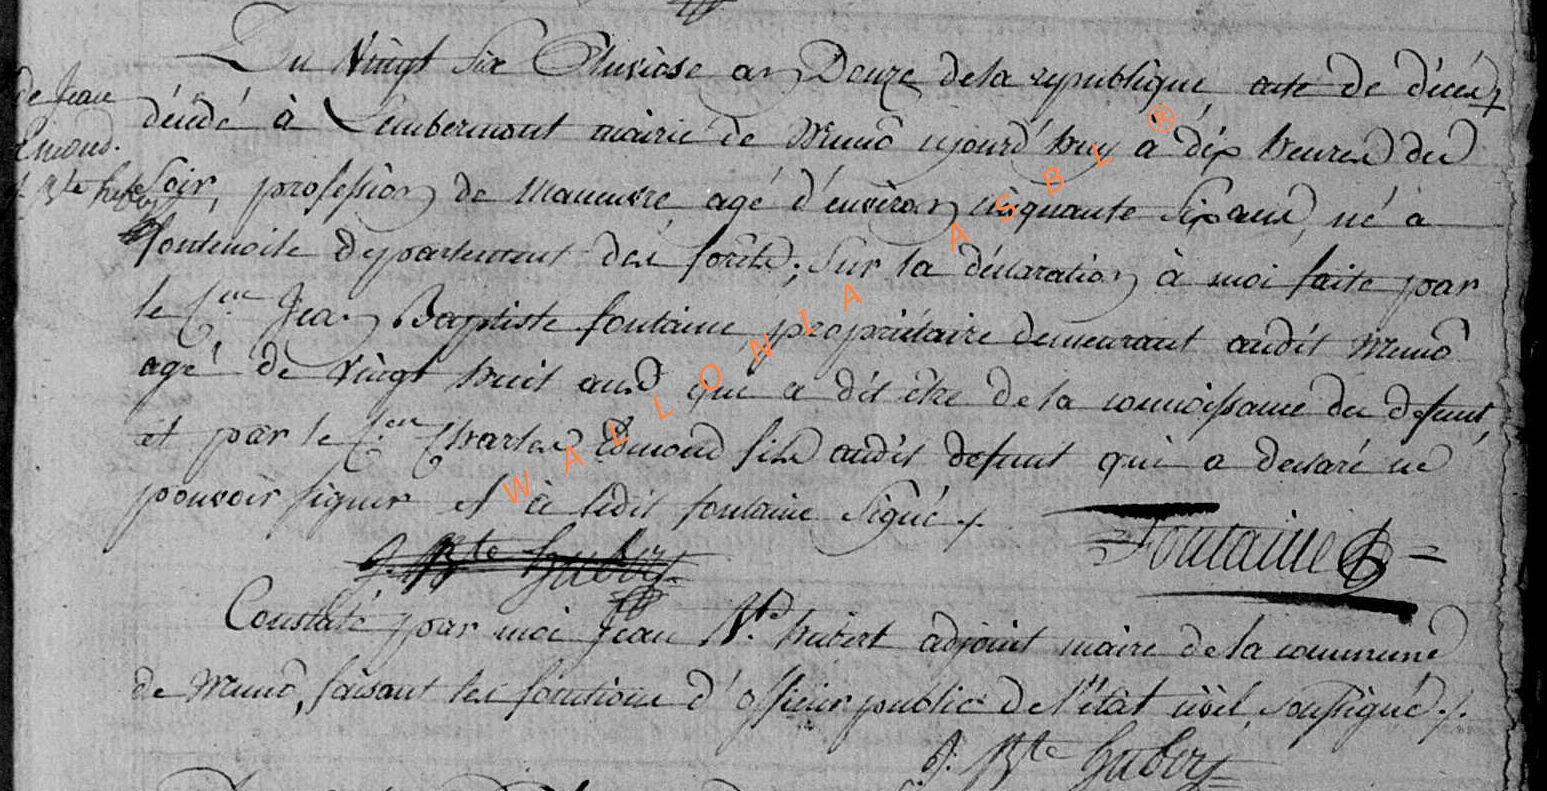 Du Vingt Six Pluviose an Douze de la republique acte de décés
de Jean
Emond.
J. Bte hubert
décédé à Lembermont mairie de Muno ajourd'huy a dix heures du
Soir, profession de Maneuvre agé d'environ cinquante Six ans, né a
fontenoile departement des forêts; Sur la déclaration à moi faite par
le C.en Jean Baptiste fontaine propriétaire demeurant audit Muno
agé de Vingt huit ans que a dit être de la connoissance du defunt,
et par le C.en Charles Edmond fils audit defunt qui a declaré ne
pouvoir signer et à ledit fontaine Signé ./.
Fontaine
J. Bte Hubert
Constaté par moi Jean Bte hubert adjoint maire de la commune
de Muno, faisant les fonctions d'officier public de l'état civil soussigné ./.
J. Bte Hubert
WALLONIA ASBL ®